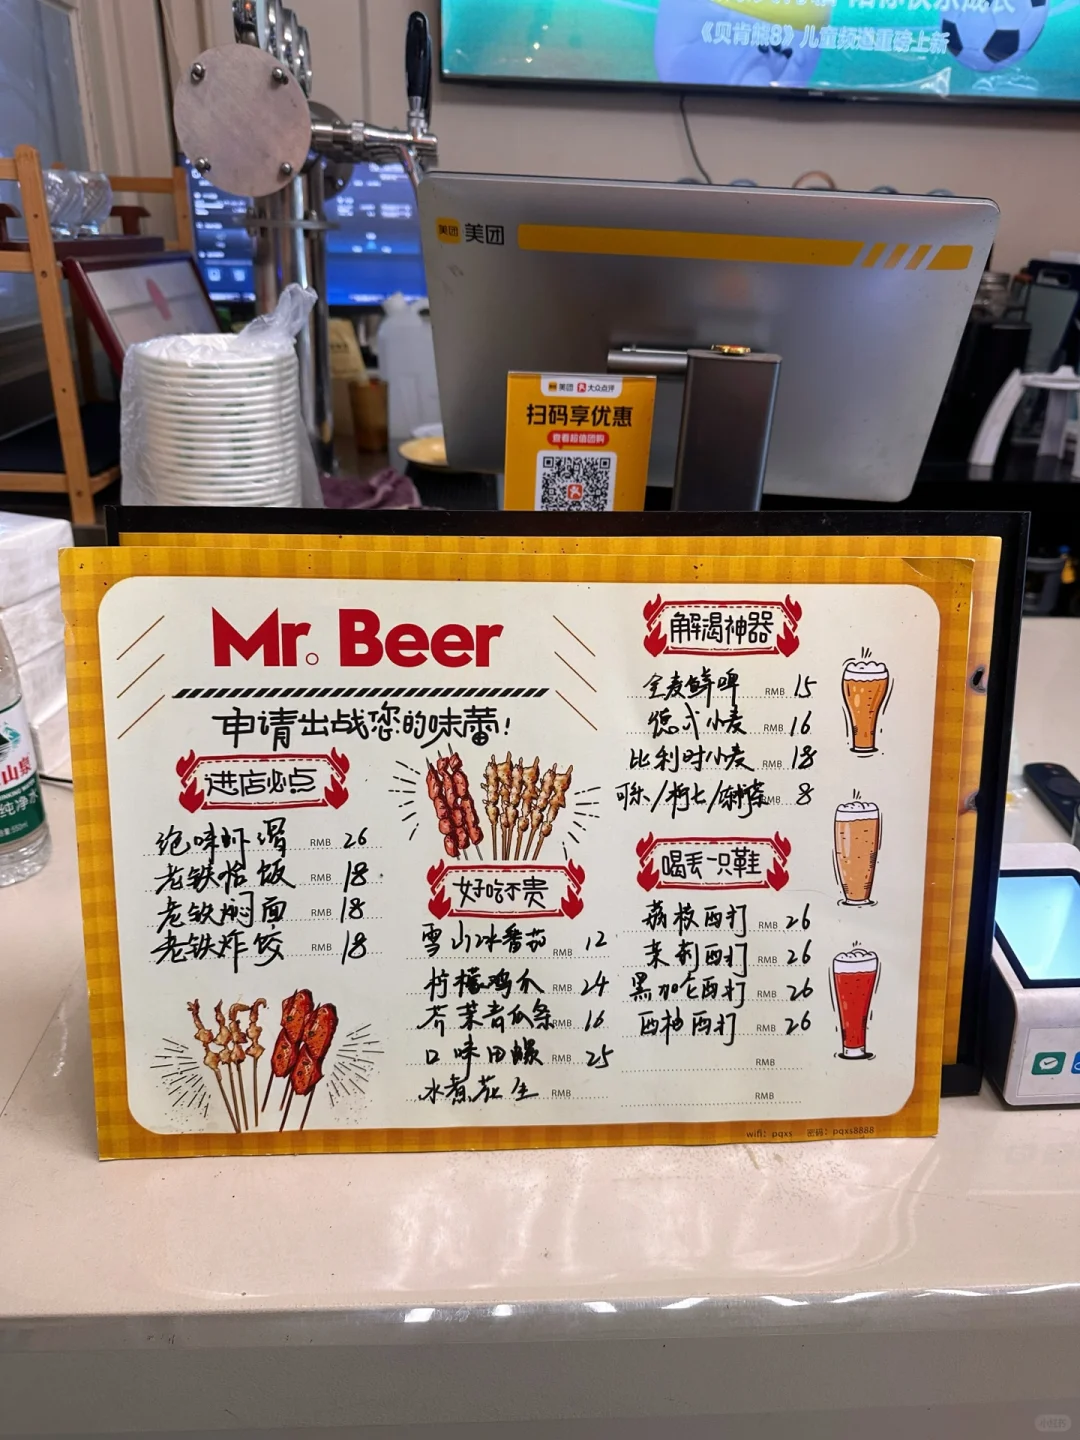 陪你快乐成长
《贝肯熊8》儿童频道重磅上新
美团 美团
美团 大众点评
扫码享优惠
查看超值团购
Mr. Beer
申请出战您的味蕾!
进店必点
泡味虾滑 RMB 26
老铁恰饭 RMB 18
老铁焖面 RMB 18
老铁炸饺 RMB 18
好吃不贵
雪山冰番茄 RMB 12
柠檬鸡爪 RMB 24
芥茉青瓜条 RMB 16
口味田螺 RMB 25
水煮花生 RMB
解渴神器
全麦鲜啤 RMB 15
德式小麦 RMB 16
比利时小麦 RMB 18
可乐/ RMB 8
喝丢一只鞋
荔枝西打 26
茉莉西打 26
黑加仑西打 26
西柚西打 26
RMB
RMB
wifi: pqxs 密码: pqxs8888
山泉
纯净水
小红书